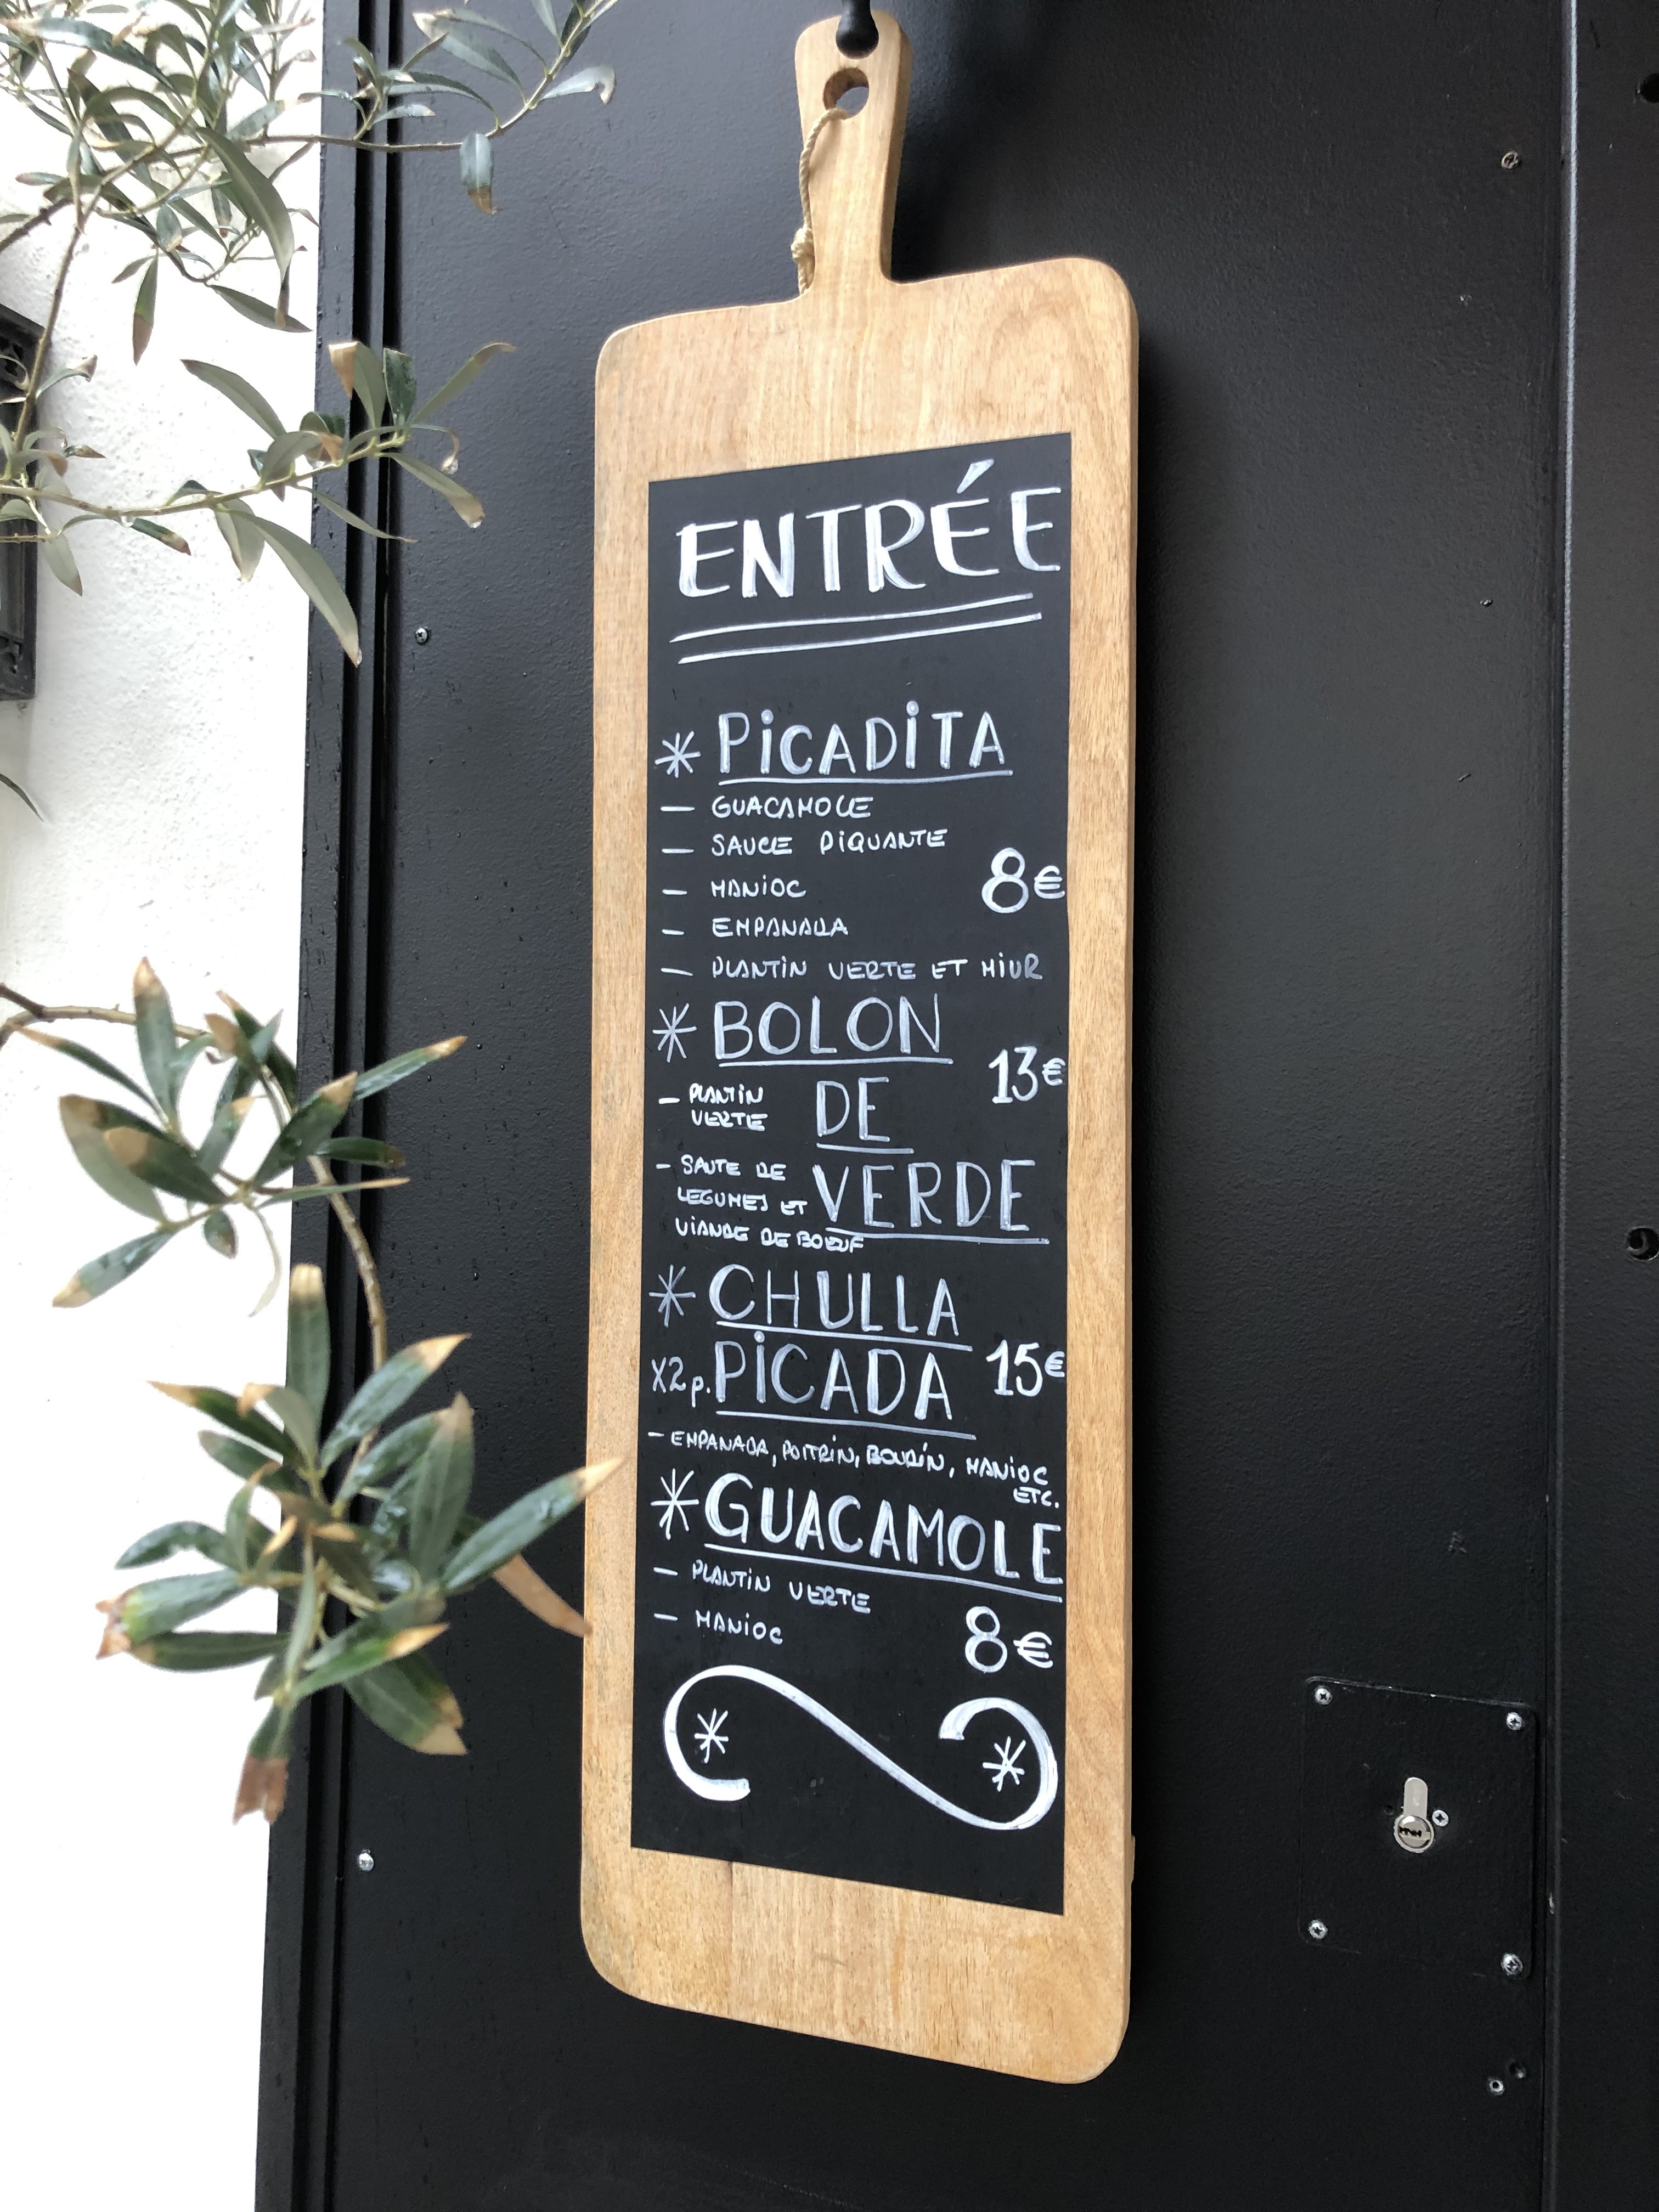 ENTRÉE
* PiCADiTA
— GUACAMOLE
— SAUCE PiQUANTE
8€
— MANiOC
— EMPANADA
— PLANTiN VERTE ET MiUR
* BOLON
13€
DE
VERDE
- PLANTiN
VERTE
- SAUTE DE
LEGUMES ET
ViANDE DE BOEUF
* CHULLA
X2p. PiCADA 15€
- EMPANADA, POiTRiN, BOUDiN, MANiOC
ETC.
* GUACAMOLE
— PLANTiN VERTE
— MANiOC
8€
* *